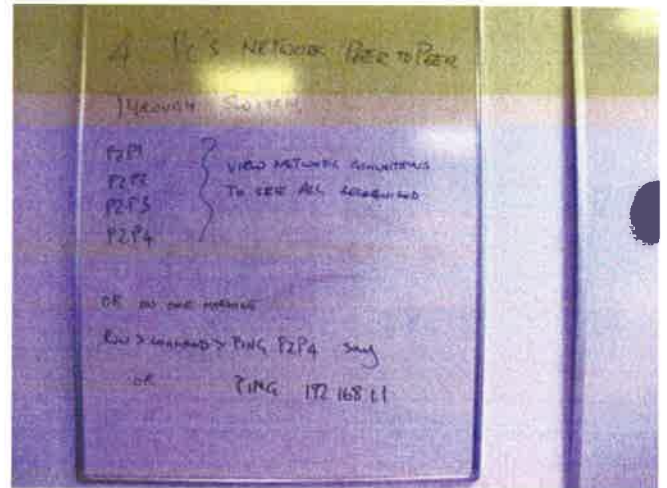 4 PC'S NETWORK PEER TO PEER
THROUGH SWITCH
P2P1
P2P2
P2P3
P2P4
VIEW NETWORK
TO SEE ALL RECOGNISED
OR ON ONE MACHINE
RUN > COMMAND > PING P2P4 say
OR PING 192 168 1.1